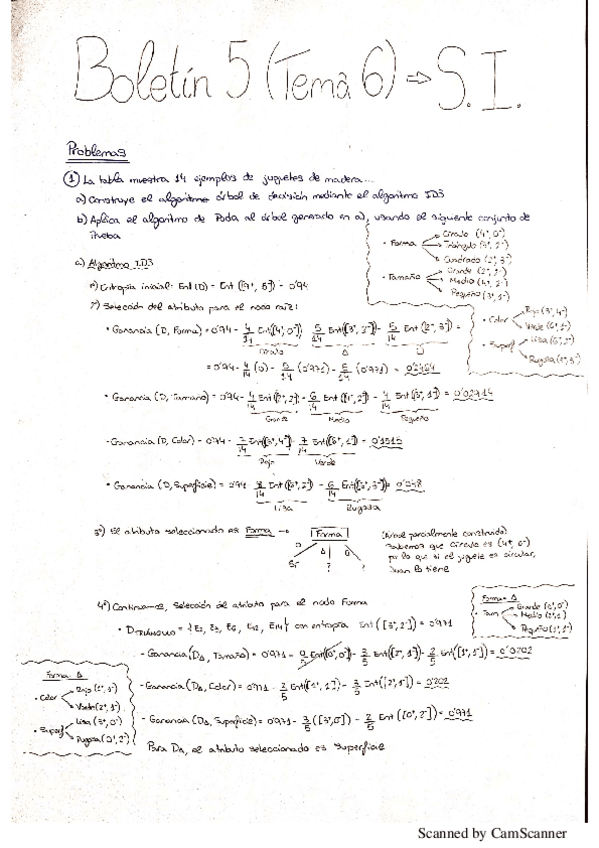 Boletín 5 (Tema 6) ⇒ S.I.
Problemas
① La tabla muestra 14 ejemplos de juguetes de madera...
a) Construye el algoritmo árbol de decisión mediante el algoritmo ID3
b) Aplica el algoritmo de Poda al árbol generado en a), usando el siguiente conjunto de
Prueba
• Forma
Círculo (4⁺, 0⁻)
Triángulo (3⁺, 2⁻)
Cuadrado (2⁺, 3⁻)
• Tamaño
Grande (2⁺, 2⁻)
Medio (4⁺, 2⁻)
Pequeño (3⁺, 1⁻)
• Color
Rojo (3⁺, 4⁻)
Verde (6⁺, 1⁻)
• Superf
Lisa (6⁺, 2⁻)
Rugosa (3⁺, 3⁻)
a) Algoritmo ID3
1º) Entropía inicial: Ent (D) = Ent ([9⁺, 5⁻]) = 0'94
2º) Selección del atributo para el nodo raíz:
• Ganancia (D, Forma) = 0'94 - 4/14 Ent([4⁺, 0⁻]) - 5/14 Ent([3⁺, 2⁻]) - 5/14 Ent ([2⁺, 3⁻]) =
Círculo Δ □
= 0'94 - 4/14 (0) - 5/14 (0'971) - 5/14 (0'971) =
• Ganancia (D, Tamaño) = 0'94 - 4/14 Ent ([2⁺, 2⁻]) - 6/14 Ent ([4⁺, 2⁻]) - 4/14 Ent ([3⁺, 1⁻]) =
Grande Medio Pequeño
• Ganancia (D, Color) = 0'94 - 7/14 Ent([3⁺, 4⁻]) - 7/14 Ent([6⁺, 1⁻]) = 0'1515
Rojo Verde
• Ganancia (D, Superficie) = 0'94 - 8/14 Ent ([6⁺, 2⁻]) - 6/14 Ent ([3⁺, 3⁻]) = 0'048
Lisa Rugosa
3º) El atributo seleccionado es Forma → Forma
O Δ □
Sí ? ?
(Árbol parcialmente construido)
Sabemos que Círculo es (4⁺, 0⁻)
por lo que si el juguete es circular,
Juan lo tiene
4º) Continuamos, selección del atributo para el nodo Forma
• D TRIÁNGULO = {E₂, E₃, E₆, E₁₂, E₁₄} con entropía Ent ([3⁺, 2⁻]) = 0'971
Forma = Δ
• Tam
Grande (0⁺, 0⁻)
Medio (2⁺, 1⁻)
Pequeño (1⁺, 1⁻)
- Ganancia (DΔ, Tamaño) = 0'971 - 0/5 Ent([0⁺, 0⁻]) - 3/5 Ent([2⁺, 1⁻]) - 2/5 Ent ([1⁺, 1⁻]) =
Forma = Δ
• Color
Rojo (1⁺, 1⁻)
Verde (2⁺, 1⁻)
• Superf
Lisa (3⁺, 0⁻)
Rugosa (0⁺, 2⁻)
- Ganancia (DΔ, Color) = 0'971 - 2/5 Ent([1⁺, 1⁻]) - 3/5 Ent([2⁺, 1⁻]) =
- Ganancia (DΔ, Superficie) = 0'971 - 3/5 ([3⁺, 0⁻]) - 2/5 Ent ([0⁺, 2⁻]) = 0'971
Para DΔ, el atributo seleccionado es Superficie
Scanned by CamScanner